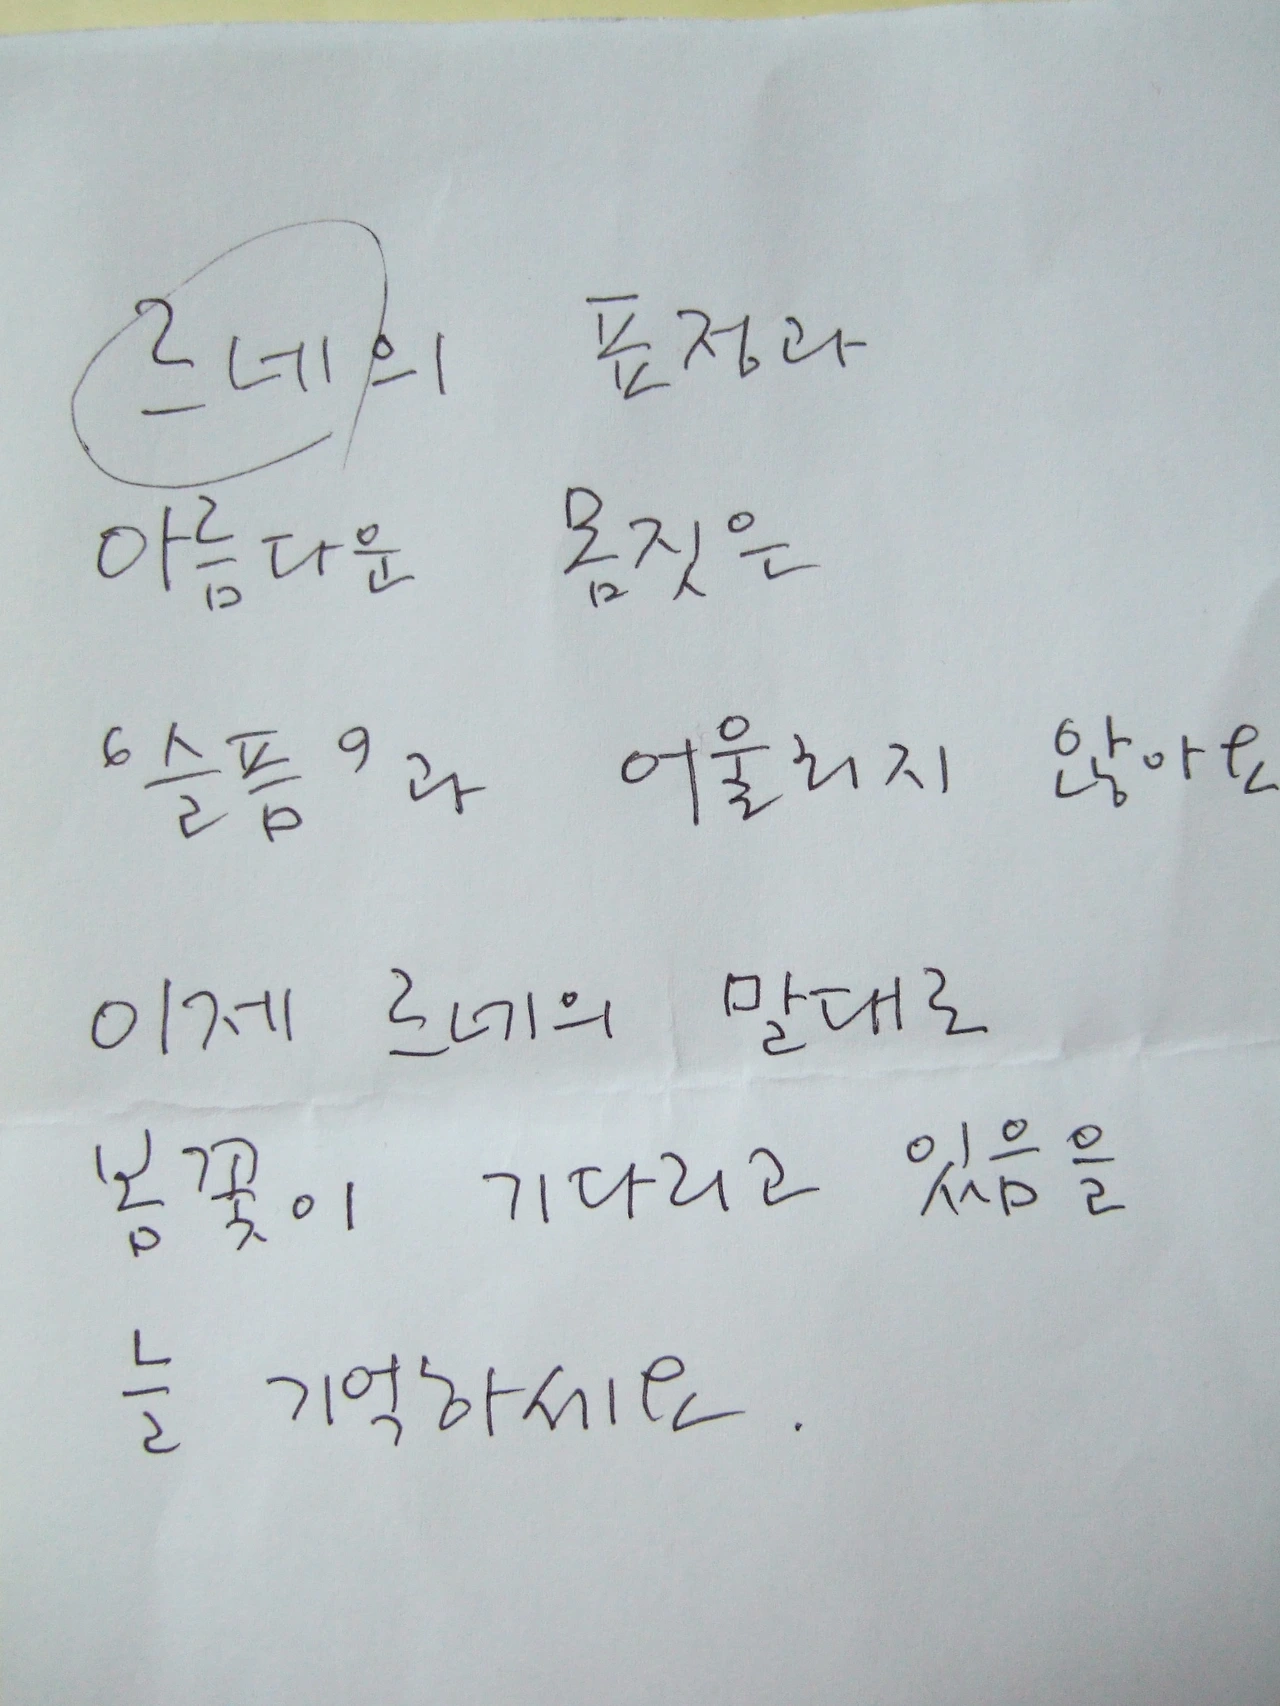 르네의 표정과
아름다운 몸짓은
'슬픔'과 어울리지 않아요
이제 르네의 말대로
봄꽃이 기다리고 있음을
늘 기억하세요.